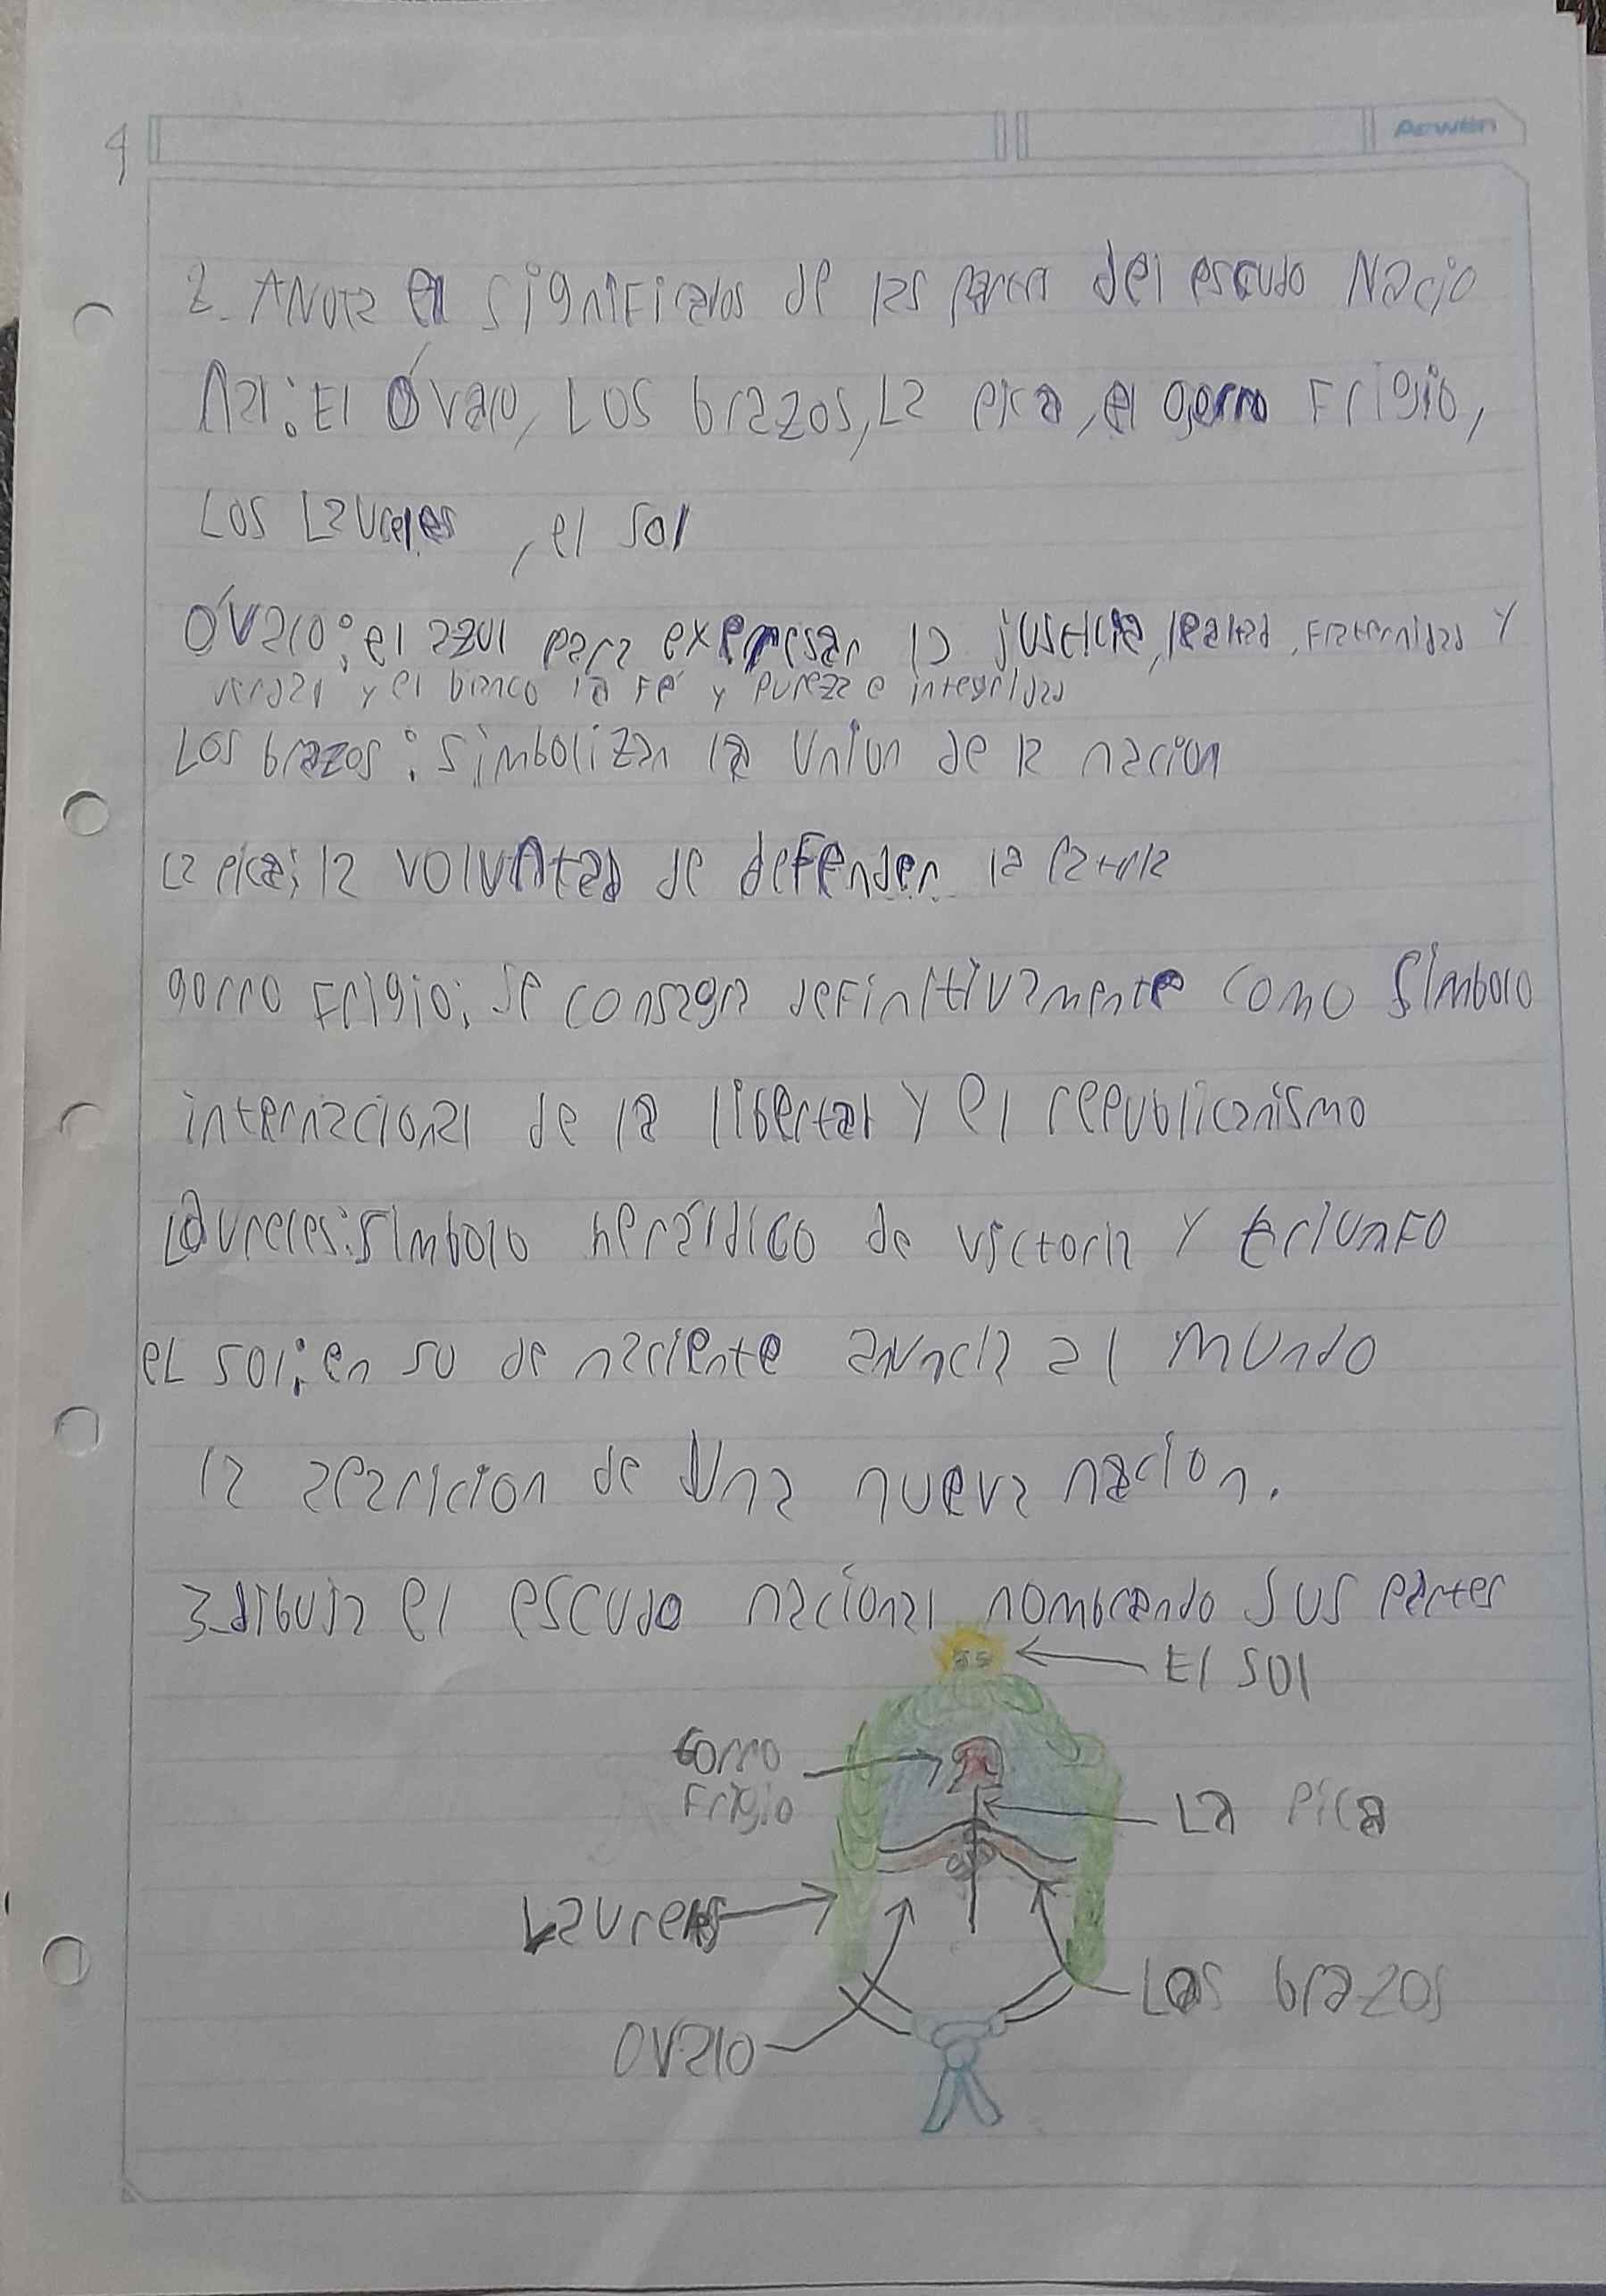 4
Arwën
2. Anota el significados de las partes del escudo Nacio
nal: El Óvalo, Los brazos, La pica, el gorro Frigio,
Los Laureles, el sol
Óvalo: el azul para expresar la justicia, lealtad, Fraternidad y
verdad y el blanco la Fé y pureza e integridad
Los brazos: Simbolizan la union de la nacion
La pica: la voluntad de defender la patria
gorro Frigio: se consagra definitivamente como símbolo
internacional de la libertad y el republicanismo
Laureles: símbolo heráldico de victoria y triunfo
eL sol: en su de naciente anuncia al mundo
la aparicion de una nueva nacion.
3_dibuja el escudo nacional nombrando sus partes
El sol
Gorro
Frigio
La Pica
Laureles
Los brazos
Ovalo